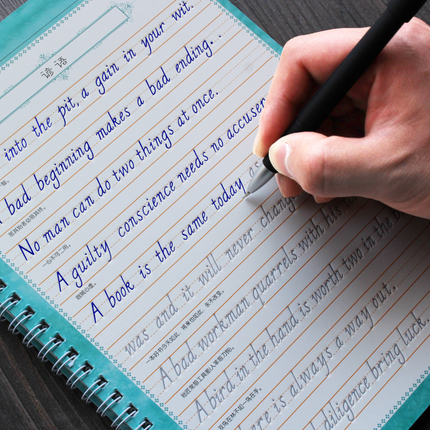 谚语
into the pit, a gain in your wit.
bad beginning makes a bad ending..
No man can do two things at once.
A guilty conscience needs no accuser
A book is the same today as
was and it will never chang
A bad workman quarrels with his
A bird in the hand is worth two in the b
here is always a way out.
diligence bring luck.